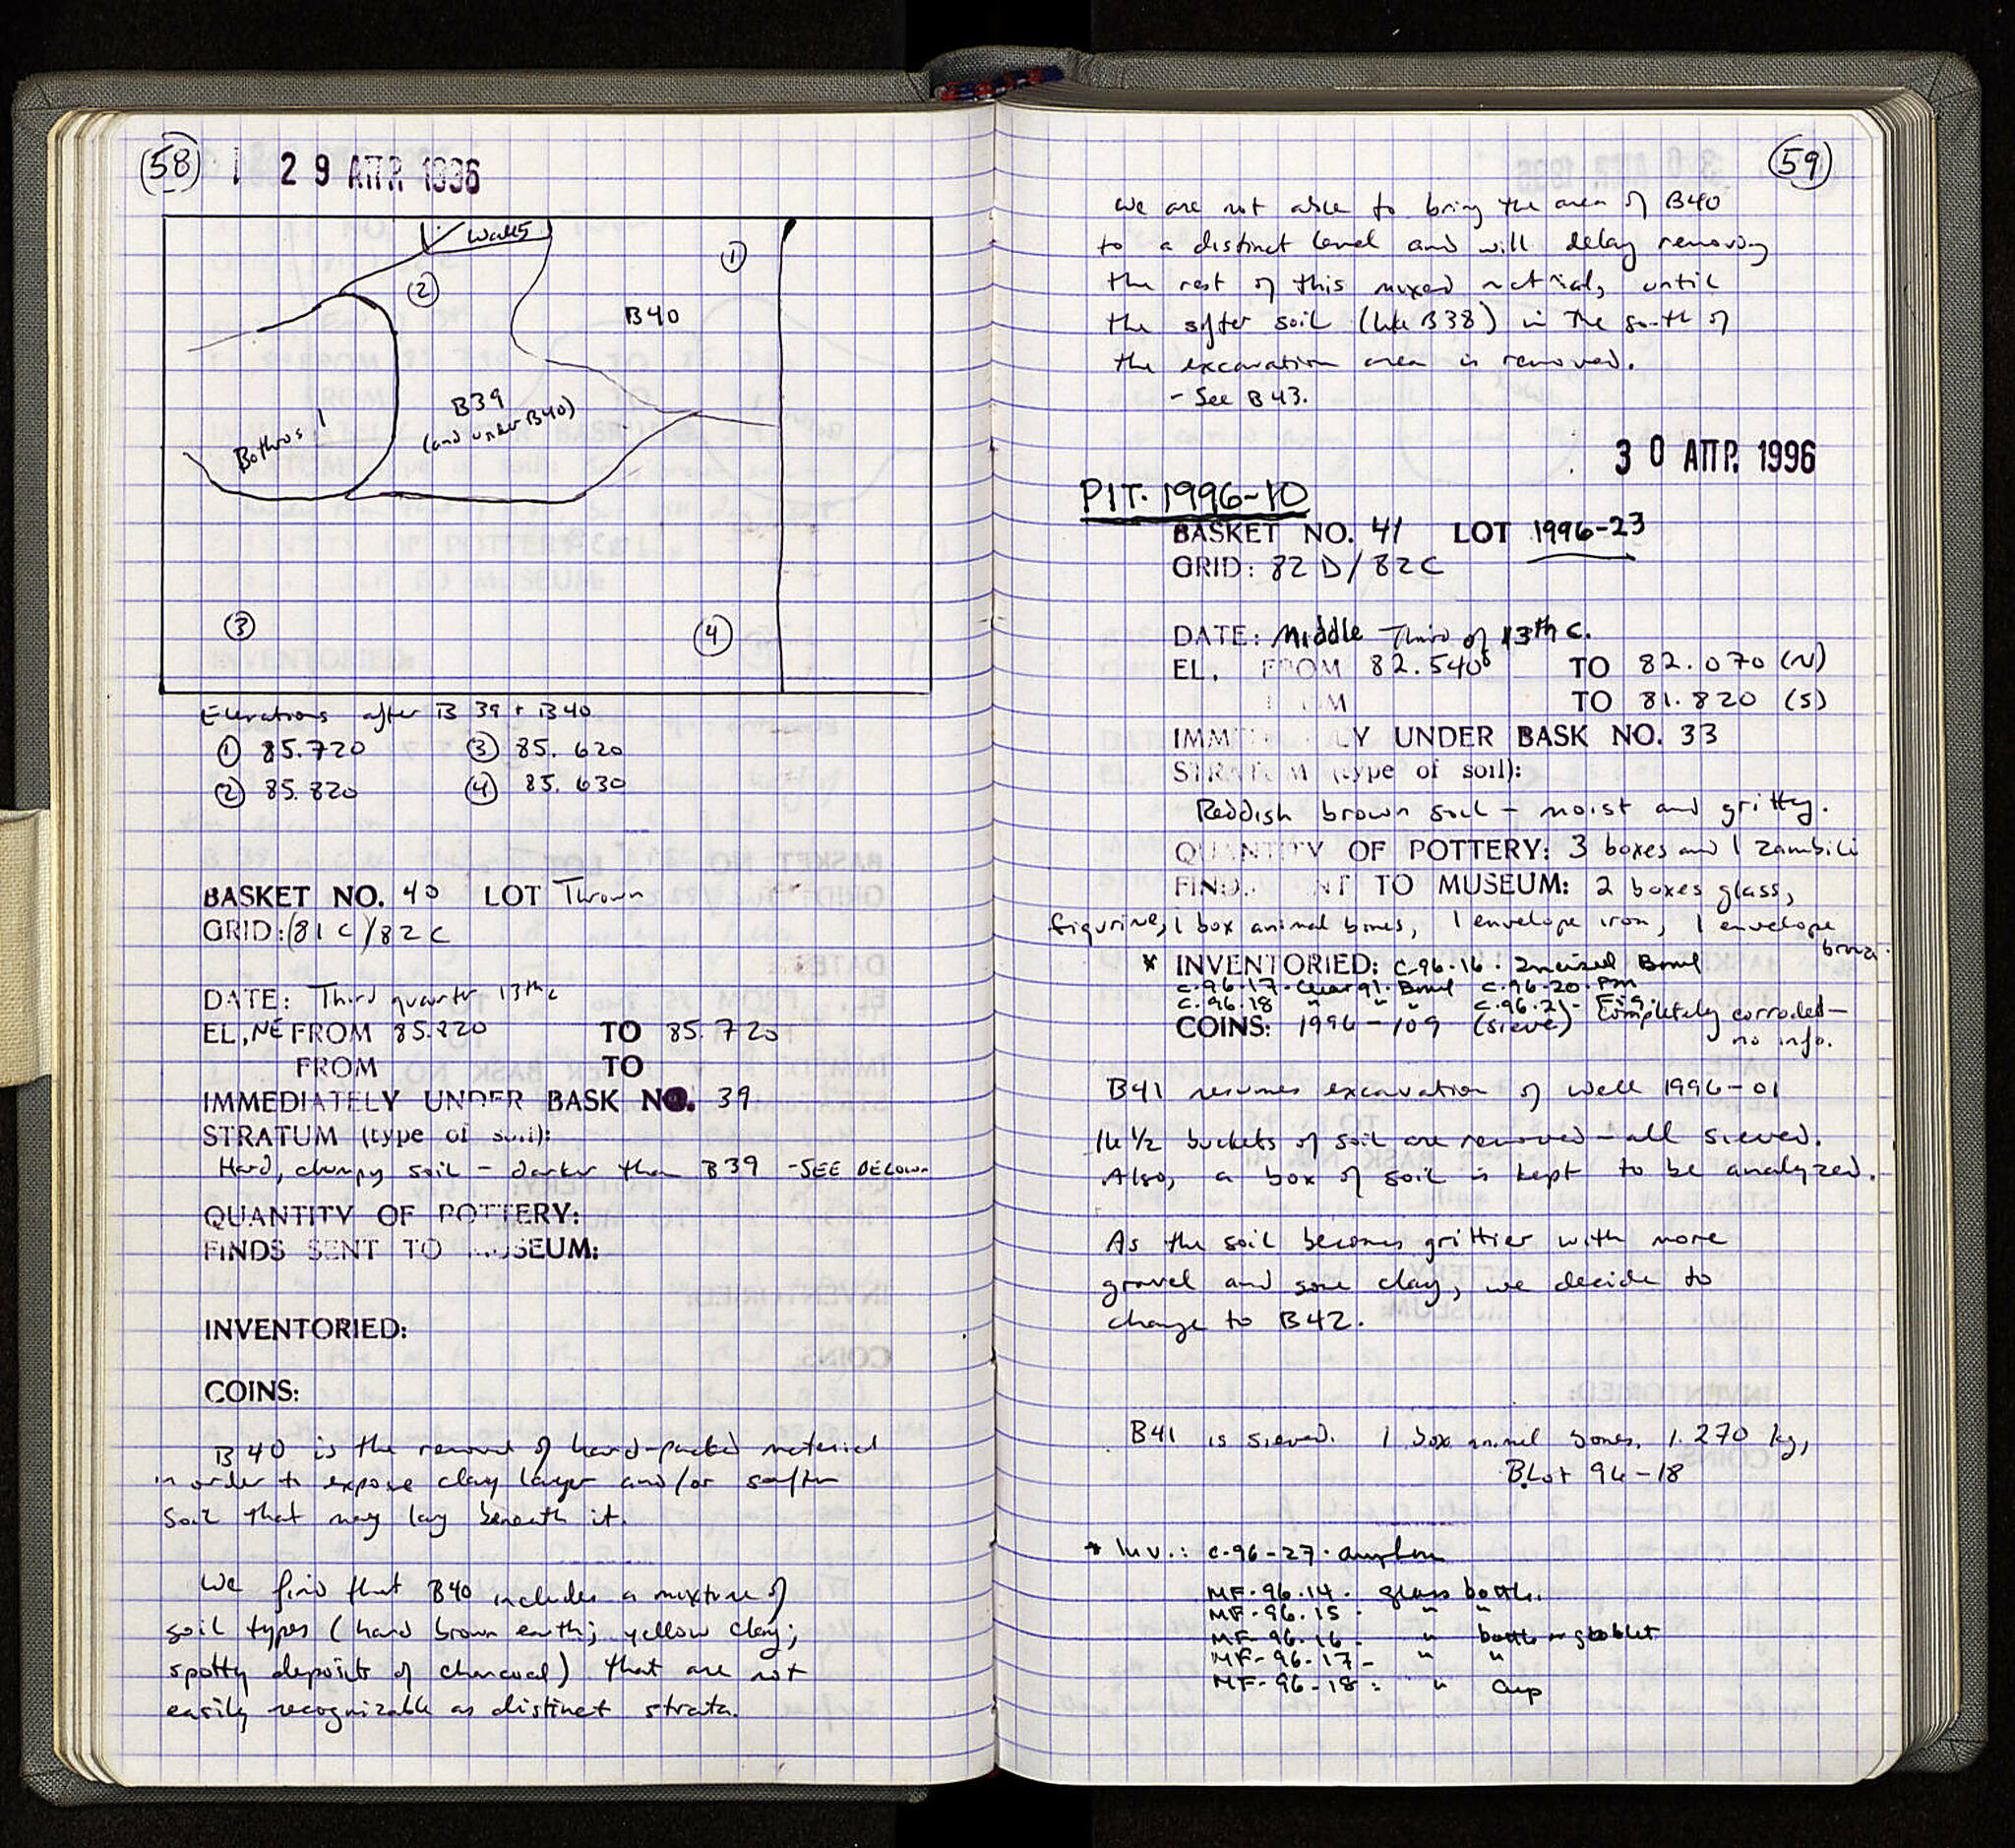 58
29 ΑΠΡ. 1996
Wall 5
①
②
B40
B39
(and under B40)
Bothros 1
③
④
Elevations after B39 + B40
① 85.720 ③ 85.620
② 85.820 ④ 85.630
BASKET NO. 40 LOT Thrown
GRID: (81C)/82C
DATE: Third quarter 13th c
EL, NE FROM 85.820 TO 85.720
FROM TO
IMMEDIATELY UNDER BASK NO. 39
STRATUM (type of soil):
Hard, clumpy soil – darker than B39 - SEE BELOW
QUANTITY OF POTTERY:
FINDS SENT TO MUSEUM:
INVENTORIED:
COINS:
B40 is the removal of hard-packed material
in order to expose clay layer and/or softer
soil that may lay beneath it.
We find that B40 includes a mixture of
soil types (hard brown earth; yellow clay;
spotty deposits of charcoal) that are not
easily recognizable as distinct strata.
59
We are not able to bring the area of B40
to a distinct level and will delay removing
the rest of this mixed material, until
the softer soil (like B38) in the south of
the excavation area is removed.
- See B43.
30 ΑΠΡ. 1996
PIT. 1996-10
BASKET NO. 41 LOT 1996-23
GRID: 82D/82C
DATE: Middle Third of 13th c.
EL, FROM 82.540 TO 82.070 (N)
TO 81.820 (S)
IMMEDIATELY UNDER BASK NO. 33
STRATUM (type of soil):
Reddish brown soil – moist and gritty.
QUANTITY OF POTTERY: 3 boxes and 1 zambili
FINDS SENT TO MUSEUM: 2 boxes glass,
figurine, 1 box animal bones, 1 envelope iron, 1 envelope
bronze.
* INVENTORIED: C-96-16: Incised Bowl
C-96-17. Bowl C-96-20.
C-96-18 " " C-96-21- Fig.
COINS: 1996-109 (sieve) Completely corroded –
no info.
B41 resumes excavation of Well 1996-01
16 ½ buckets of soil are removed – all sieved.
Also, a box of soil is kept to be analyzed.
As the soil becomes grittier with more
gravel and some clay, we decide to
change to B42.
B41 is sieved. 1 box animal bones, 1.270 kg,
BLot 96-18
* Inv.: C-96-27. amphora
MF-96-14. glass bottle.
MF-96-15. " "
MF-96-16 - " bottle or goblet
MF-96-17 - " "
MF-96-18: " cup